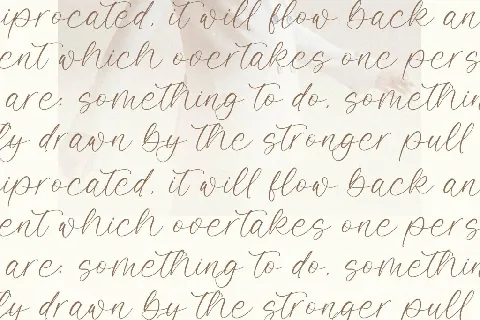 iprocated, it will flow back an
ent which overtakes one pers
are: something to do, somethin
ly drawn by the stronger pull
iprocated, it will flow back an
ent which overtakes one pers
are: something to do, somethin
ly drawn by the stronger pull